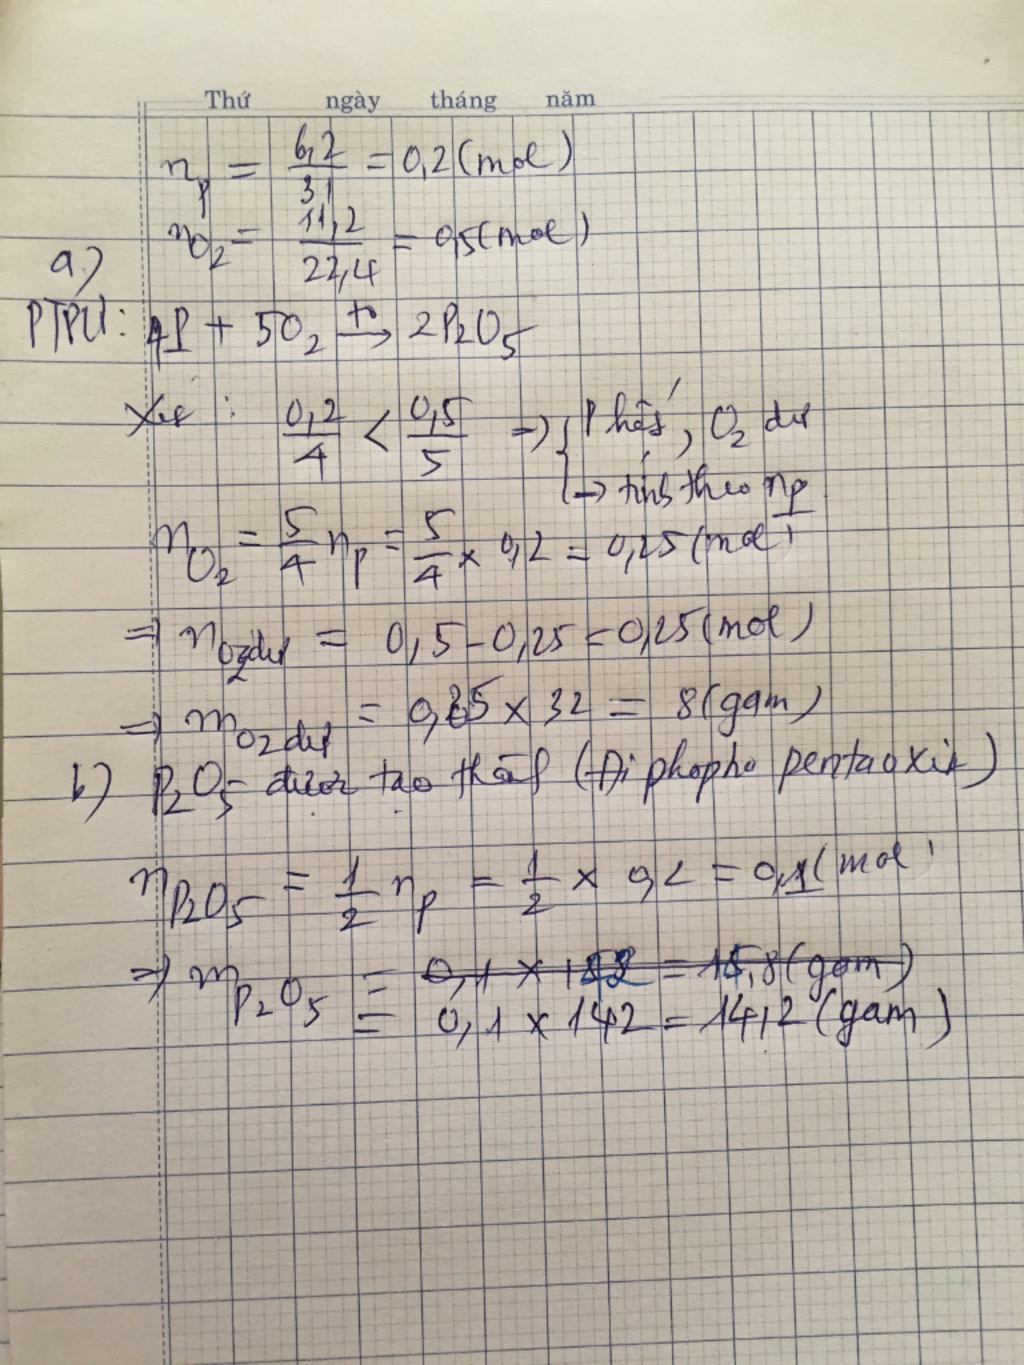 Thứ ngày tháng năm
n_P = 6,2/31 = 0,2 (mol)
n_O2 = 11,2/22,4 = 0,5 (mol)
a)
PTPƯ: 4P + 5O2 —t°→ 2P2O5
Xét : 0,2/4 < 0,5/5 => { P hết, O2 dư
→ tính theo n_P
n_O2 = 5/4 n_P = 5/4 × 0,2 = 0,25 (mol)
=> n_O2 dư = 0,5 - 0,25 = 0,25 (mol)
=> m_O2 dư = 0,25 × 32 = 8 (gam)
b) P2O5 được tạo thành (Điphopho pentaoxit)
n_P2O5 = 1/2 n_P = 1/2 × 0,2 = 0,1 (mol)
=> m_P2O5 = 0,1 × 158 = 15,8 (gam)
= 0,1 × 142 = 14,2 (gam)